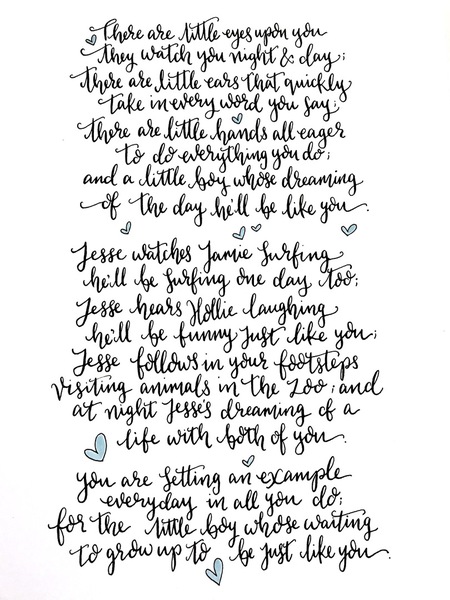 There are little eyes upon you
they watch you night & day;
there are little ears that quickly
take in every word you say;
there are little hands all eager
to do everything you do;
and a little boy whose dreaming
of the day he'll be like you.
Jesse watches Jamie surfing
he'll be surfing one day too;
Jesse hears Hollie laughing
he'll be funny just like you;
Jesse follows in your footsteps
visiting animals in the zoo; and
at night Jesse's dreaming of a
life with both of you.
you are setting an example
everyday in all you do;
for the little boy whose waiting
to grow up to be just like you.